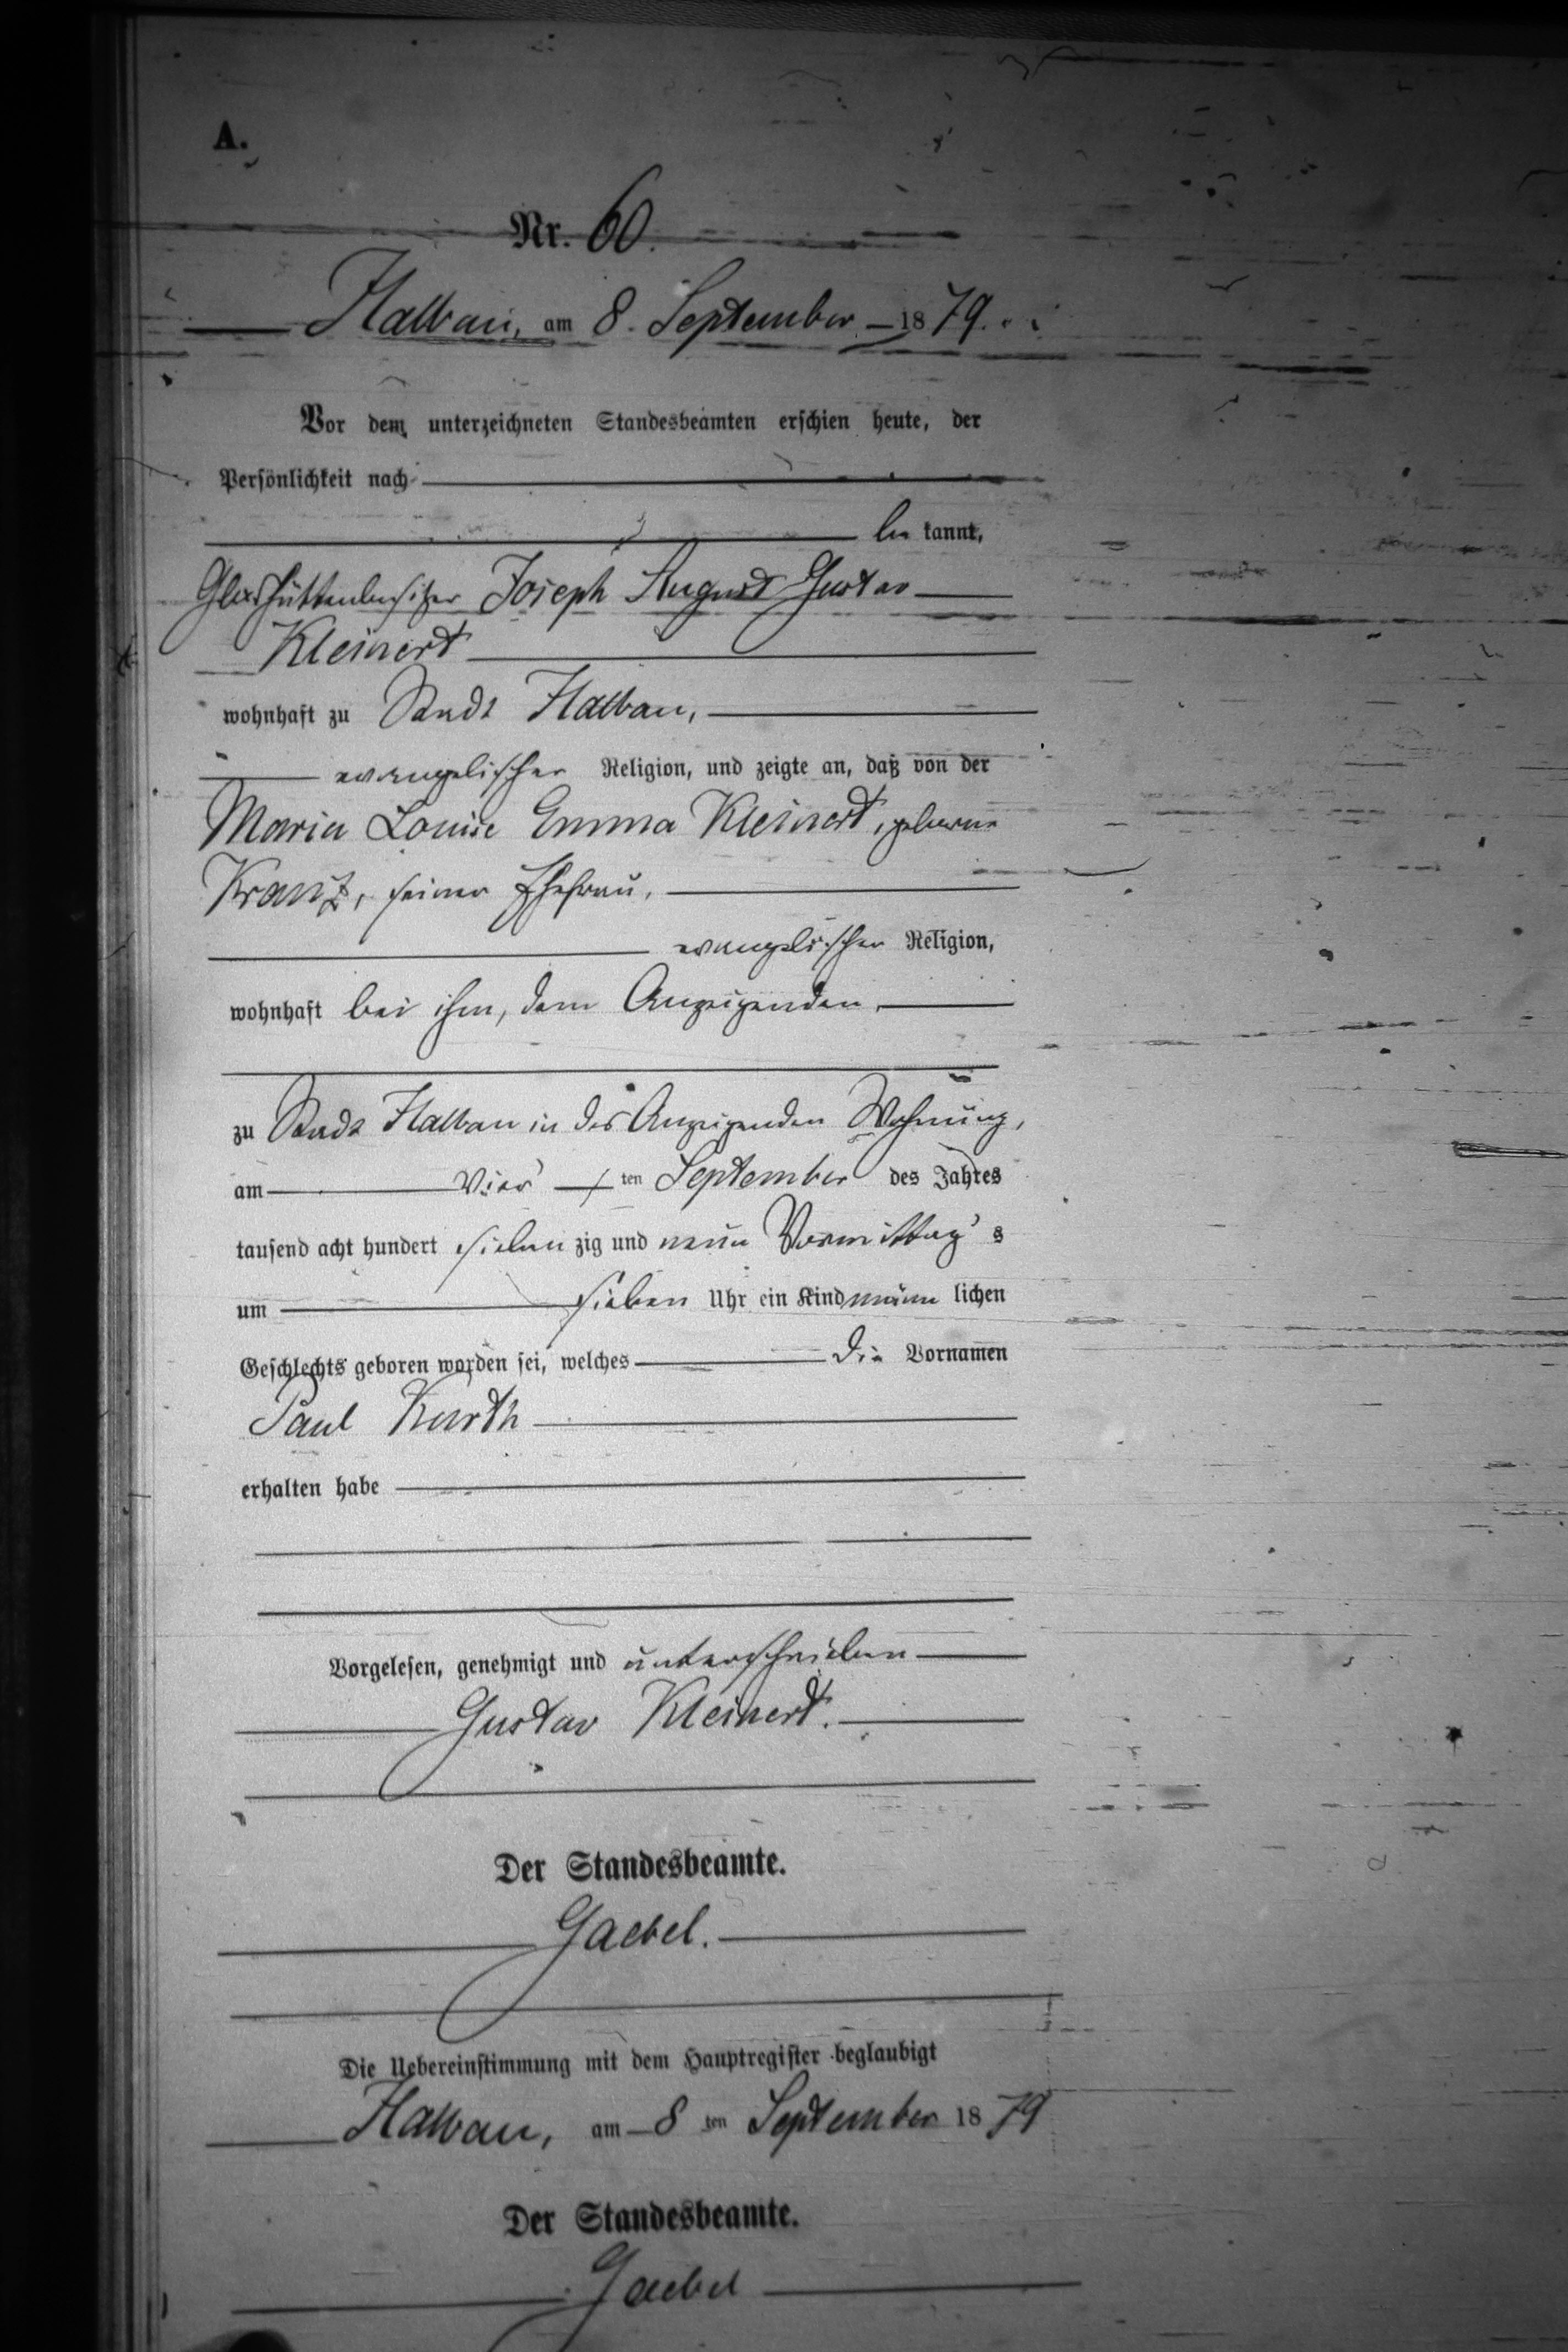 A.
Nr. 60.
Halbau, am 8. September 1879.
Vor dem unterzeichneten Standesbeamten erschien heute, der
Persönlichkeit nach
be kannt,
Glashüttenbesitzer Joseph August Gustav
Kleinert
wohnhaft zu Stadt Halbau,
evangelischer Religion, und zeigte an, daß von der
Maria Louise Emma Kleinert, geborne
Krantz, seiner Ehefrau,
evangelischer Religion,
wohnhaft bei ihm, dem Anzeigenden,
zu Stadt Halbau in des Anzeigenden Wohnung,
am vier ten September des Jahres
tausend acht hundert sieben zig und neun Vormittag s
um sieben Uhr ein Kind männ lichen
Geschlechts geboren worden sei, welches die Vornamen
Paul Kurth
erhalten habe
Vorgelesen, genehmigt und unterschrieben
Gustav Kleinert.
Der Standesbeamte.
Gaebel.
Die Uebereinstimmung mit dem Hauptregister beglaubigt
Halbau, am 8 ten September 1879
Der Standesbeamte.
Gaebel